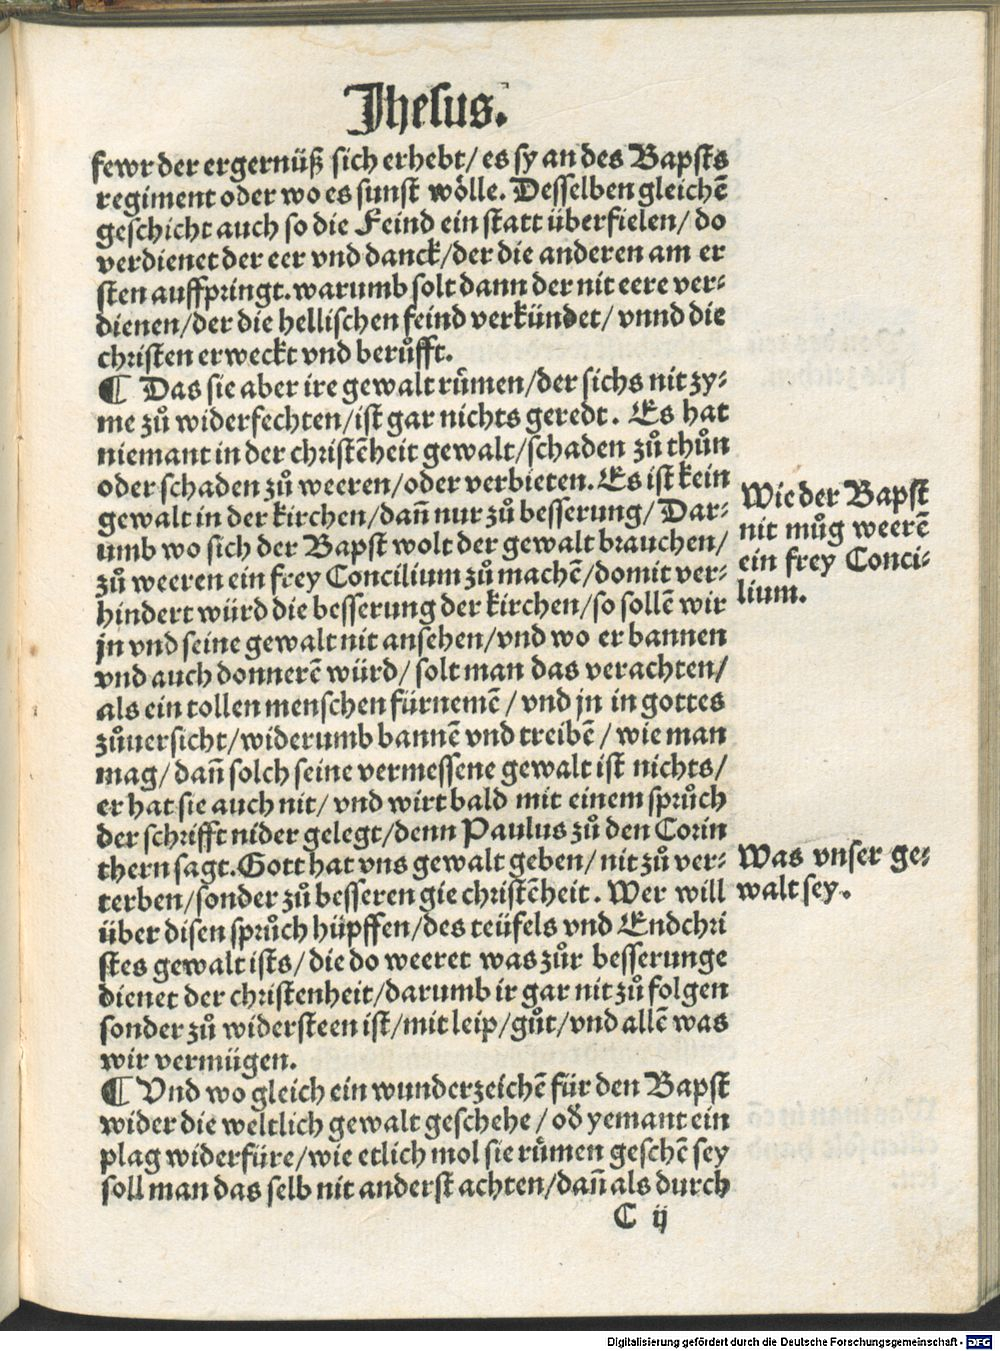 Jhesus.
fewr der ergernüß sich erhebt/ es sy an des Bapsts
regiment oder wo es sunst wölle. Desselben gleichē
geschicht auch so die Feind ein statt überfielen/ do
verdienet der eer vnd danck/der die anderen am er
sten auffpringt. warumb solt dann der nit eere ver⸗
dienen/der die hellischen feind verkündet/ vnnd die
christen erweckt vnd berůfft.
¶ Das sie aber ire gewalt růmen/der sichs nit zy⸗
me zů widerfechten/ist gar nichts geredt. Es hat
niemant in der christēheit gewalt/schaden zů thůn
oder schaden zů weeren/oder verbieten. Es ist kein
gewalt in der kirchen/dañ nur zů besserung/ Dar⸗
umb wo sich der Bapst wolt der gewalt brauchen/
zů weeren ein frey Concilium zů machē/domit ver⸗
hindert würd die besserung der kirchen/so sollē wir
jn vnd seine gewalt nit ansehen/vnd wo er bannen
vnd auch donnerē würd/ solt man das verachten/
als ein tollen menschen fürnemē / vnd jn in gottes
zůuersicht/widerumb bannē vnd treibē / wie man
mag/ dañ solch seine vermessene gewalt ist nichts/
er hat sie auch nit/ vnd wirt bald mit einem sprůch
der schrifft nider gelegt/denn Paulus zů den Corin
thern sagt. Gott hat vns gewalt geben/ nit zů ver⸗
terben/sonder zů besseren gie christēheit. Wer will
über disen sprůch hüpffen/des teüfels vnd Endchri
stes gewalt ists/die do weeret was zůr besserunge
dienet der christenheit/darumb ir gar nit zů folgen
sonder zů widersteen ist/mit leip/gůt/vnd allē was
wir vermügen.
¶ Vnd wo gleich ein wunderzeichē für den Bapst
wider die weltlich gewalt geschehe / oð yemant ein
plag widerfüre/wie etlich mol sie růmen geschē sey
soll man das selb nit anderst achten/dañ als durch
C ij
Wie der Bapst
nit můg weerē
ein frey Conci⸗
lium.
Was vnser ge⸗
walt sey.
Digitalisierung gefördert durch die Deutsche Forschungsgemeinschaft - DFG